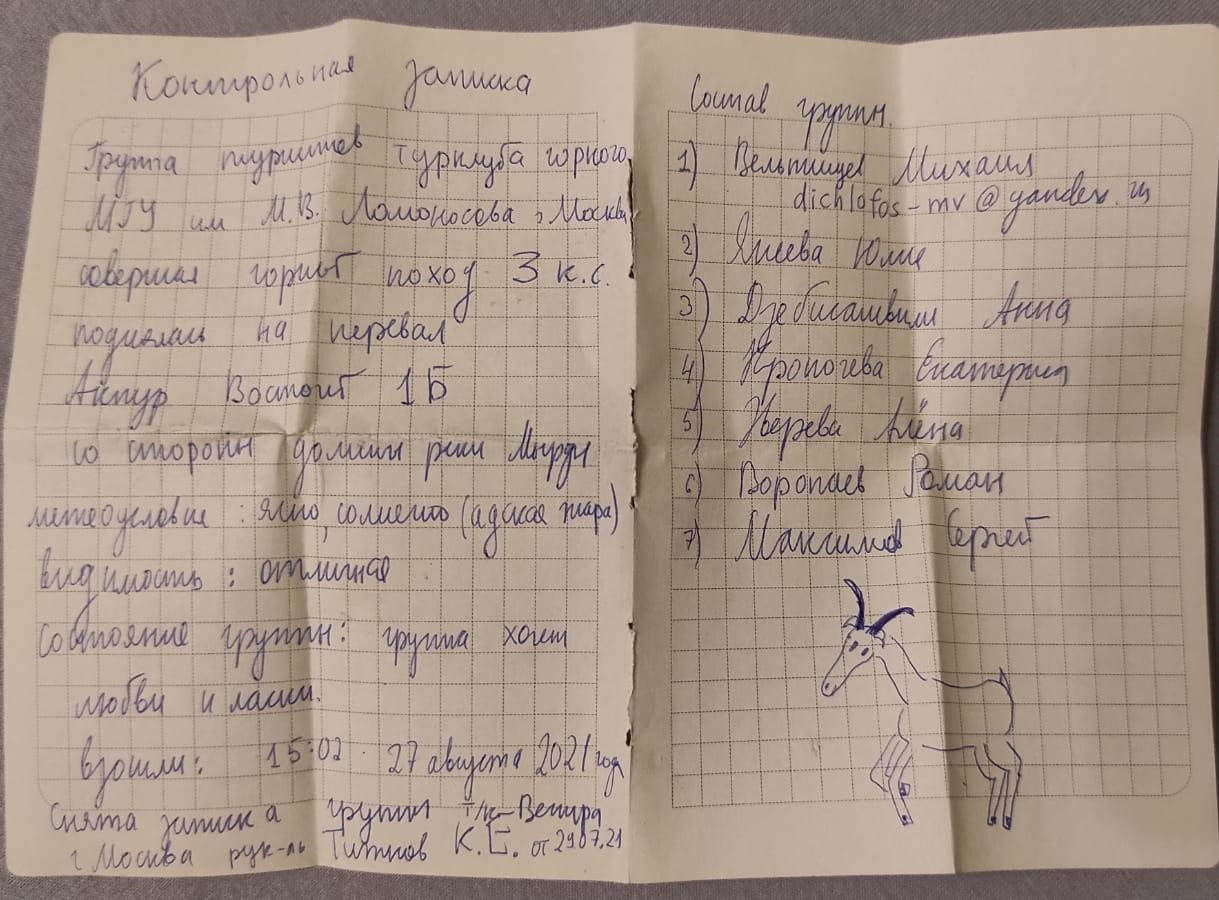 Контрольная записка
Группа туристов турклуба горного
МГУ им М.В. Ломоносова г Москвы
совершая горный поход 3 к.с.
поднялась на перевал
Актур Восточный 1Б
со стороны долины реки
метеоусловия: ясно, солнечно (адская жара)
видимость: отличная
Состояние группы: группа хочет
любви и ласки.
взошли: 15:02 27 августа 2021 год
Снята записка группы т/к Вестра
г Москва рук-ль К.Е. от 29.07.21
Состав группы.
1) Вельтищев Михаил
dichlofos-mv@yandex.ru
2) Юлия
3) Дзебисашвили Анна
4) Кропочева Екатерина
5) Зверева Алёна
6) Воропаев Роман
7) Максимов Сергей